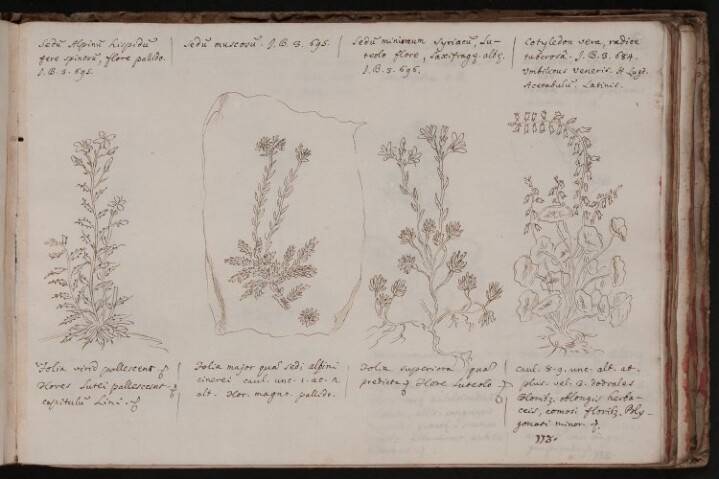 Sedū Alpinū hispidū
fere spinosū, flore pallido.
J.B. 3. 695.
Sedū muscosū. J.B. 3. 695.
Sedū minimum Syriacū, Lu-
teolo flore, Saxifragę albę.
J.B. 3. 696.
Cotyledon vera, radice
tuberosâ. J.B. 3. 684.
Umbilicus Veneris. H. Lugd.
Acetabulū. Latinis.
Folia virid pallescent
Flores Lutei pallescent
capitulū Lini.
Folia major quā sedi alpini
cinerei caul. unc. 1. at. 2
alt. Flor. magn. pallido.
Folia superiora quā
predicta Flore Luteolo
caul. 8-9. unc. alt. at.
plus. vel. 12. dodrales
floribꝫ. oblongis herba-
ceis, comosi floribꝫ. Poly-
gonati minor.